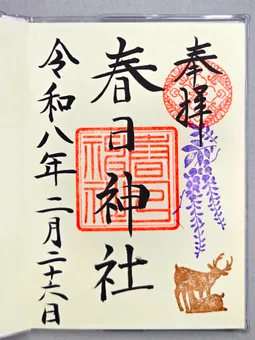 奉拝
春日神社
令和八年二月二十六日